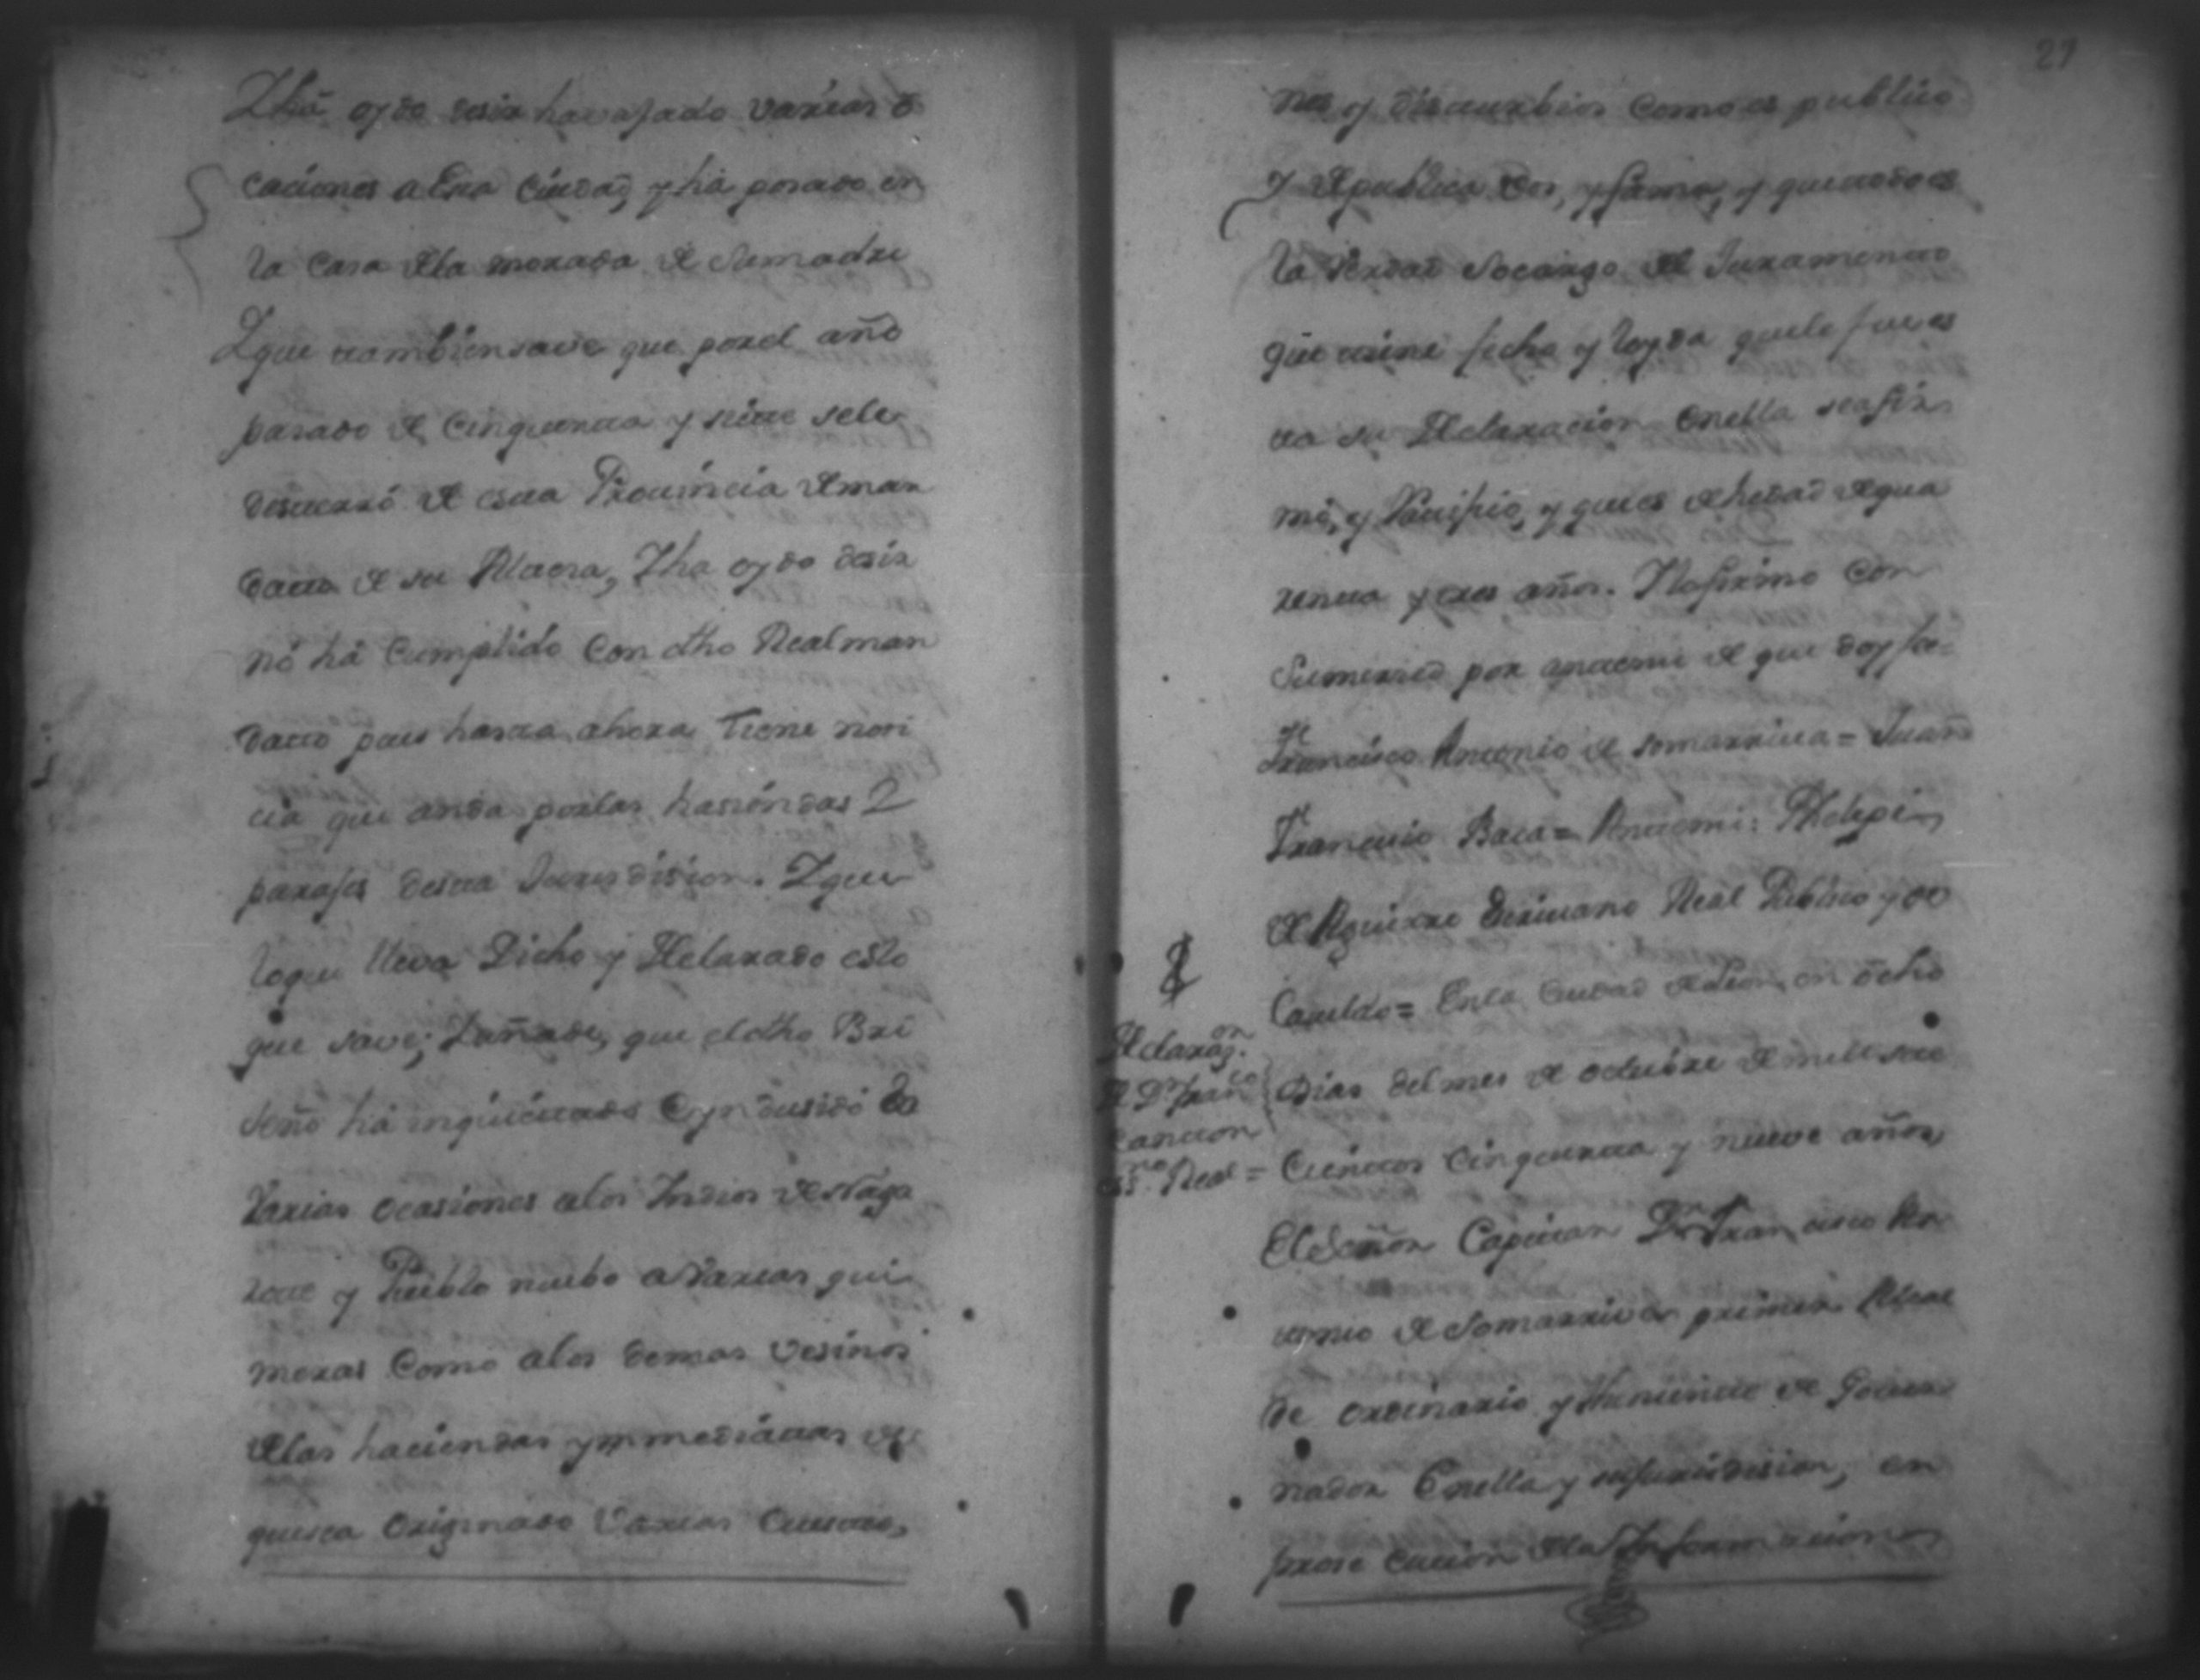 Yha oydo desir ha vajado varias o
caciones a Esta Ciudad, y ha posado en
la Casa de la morada de Sumadre
Yque tambien save que por el año
pasado de Cinquenta y siete sele
desterró de esta Provincia demar
datto de su Alteza, Yha oydo desir
nó há Cumplido Con dho Real man
datto pues hasta ahora Tiene noti
cia que anda por las hasiendas Y
parajes desta Jurisdision. Yque
loque lleva Dicho y Declarado esto
que save; Yañade, que el dho Bri
seño há inquietado Eyndusido En
Varias ocasiones alos Yndios de Naga
rote y Pueblo nuebo a Varias qui
meras Como alos demas Vesinos
delas haciendas ymmediatas de
questa Originado Varias Cuestio,
27
nes y disturbios Como es publico
y de publica Vos, y fama, y que todo es
la Verdad Socargo del Juramento
que tiene fecho y leyda que le fue es
ta su Declaracion Enella seafir
mó, y Ratifico, y que es de hedad de qua
renta y tres años. Ylo firmo Con
Sumerced por antemi de que doy fee=
Francisco Antonio de Somarriva= Juan
Francisco Baca= Antemi: Phelipe
de Aguirre Escrivano Real Publico y de
Cavildo= Enla Ciudad de Leon en ocho
Dias del mes de Octubre de mill sete
Cientos Cinquenta y nueve años,
El Señor Capitan Dn Francisco An
tonio de Somarriva primer Alcal
de Ordinario y theniente de Gover
nador Enella y su jurisdision, en
prose cucion de la Ynformacion
Declaraz.on
D Dn Juan
ss.no Real=